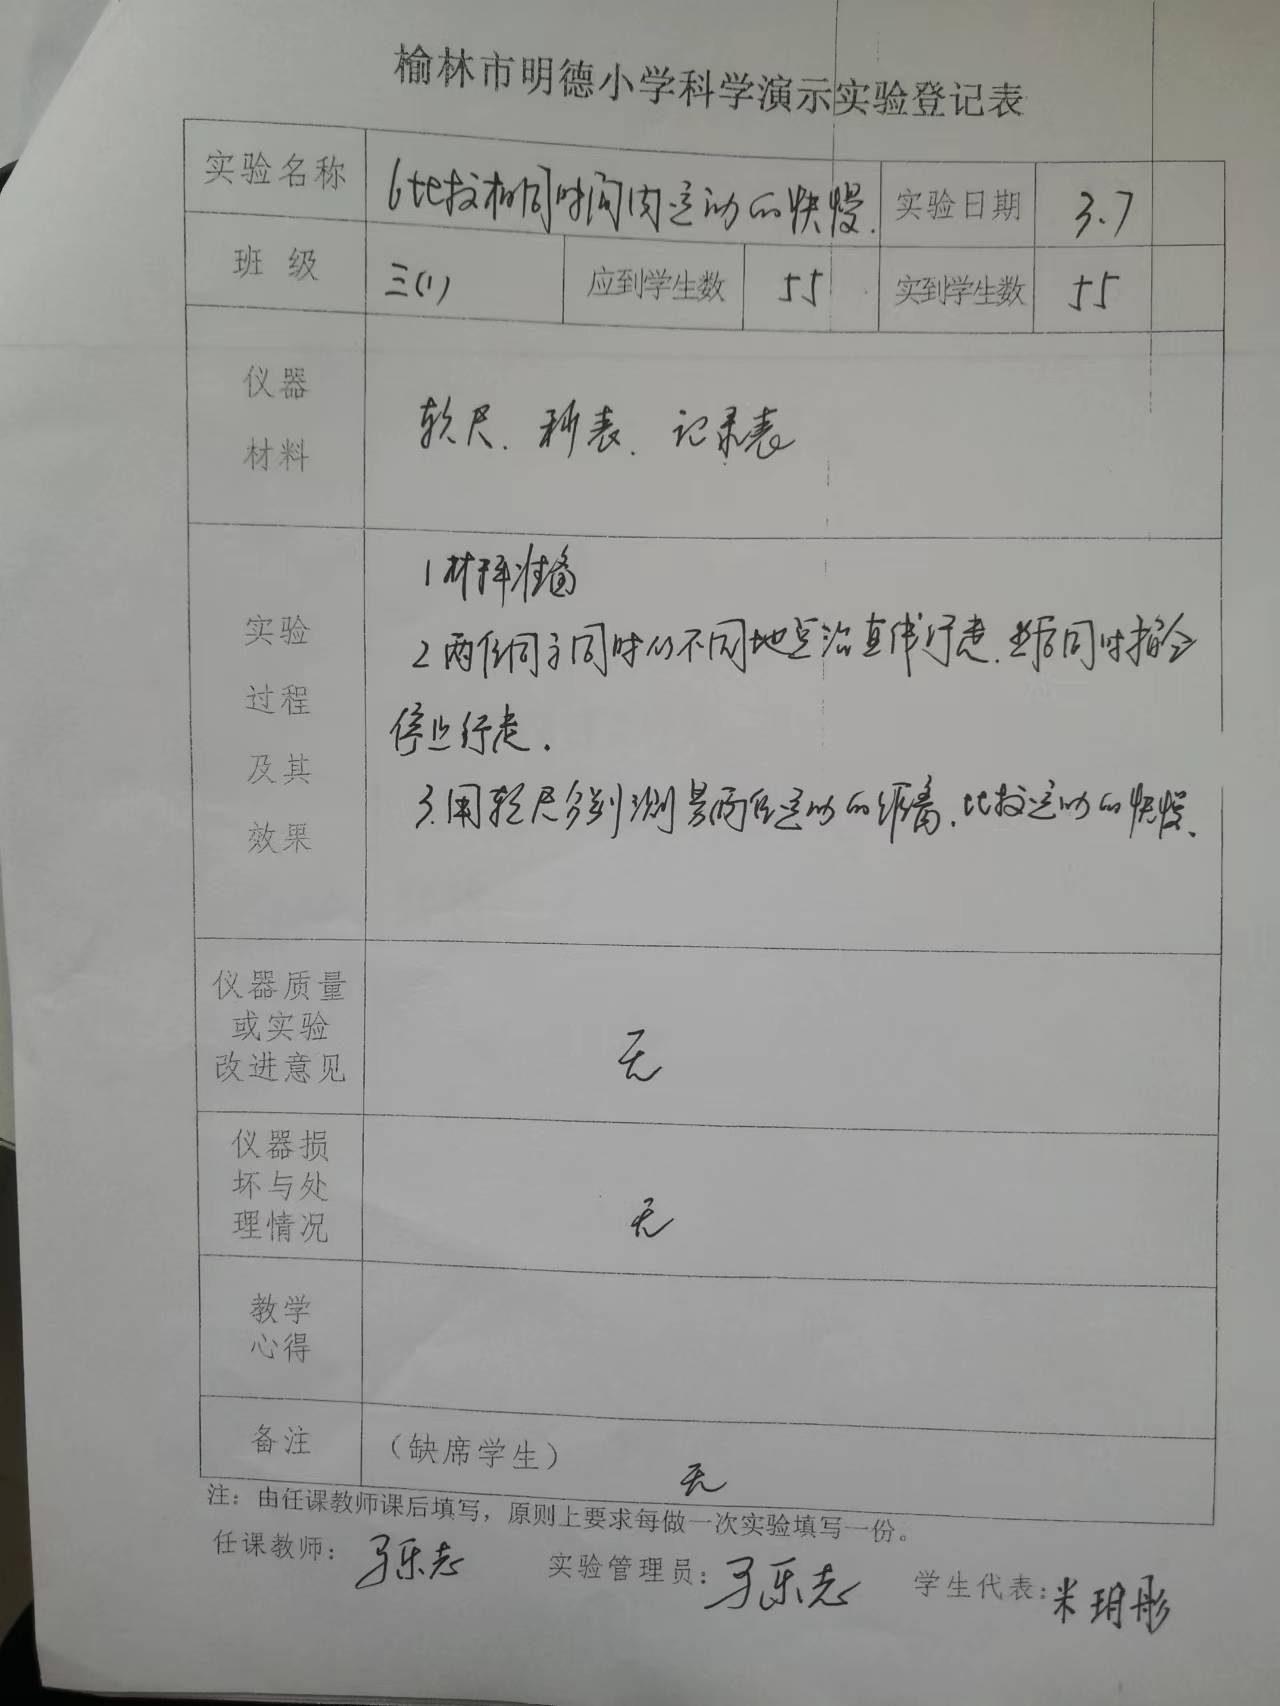 榆林市明德小学科学演示实验登记表
实验名称 6比较相同时间内运动的快慢. 实验日期 3.7
班 级 三(1) 应到学生数 55 实到学生数 55
仪器
材料
软尺、秒表、记录表
实验
过程
及其
效果
1 材料准备
2 两位同学同时从不同地点沿直线行走、然后同时指令
停止行走.
3.用软尺分别测量两位运动的距离、比较运动的快慢、
仪器质量
或实验
改进意见
无
仪器损
坏与处
理情况
无
教学
心得
备注 (缺席学生) 无
注: 由任课教师课后填写, 原则上要求每做一次实验填写一份。
任课教师: 马乐志 实验管理员: 马乐志 学生代表: 米玥彤